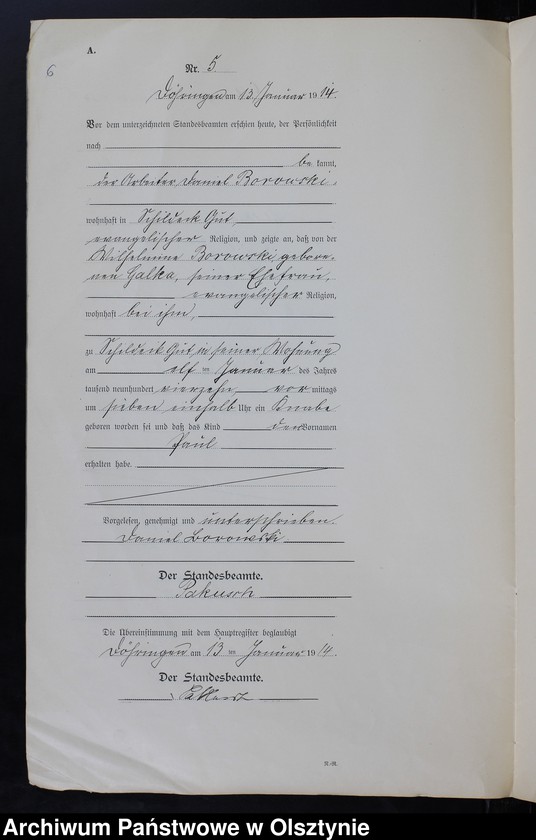 A.
6
Nr. 5.
Döhringen am 13. Januar 1914.
Vor dem unterzeichneten Standesbeamten erschien heute, der Persönlichkeit
nach
be kannt,
der Arbeiter Daniel Borowski,
wohnhaft in Schildeck Gut
evangelischer Religion, und zeigte an, daß von der
Wilhelmine Borowski gebore-
nen Galka, seiner Ehefrau,
evangelischer Religion,
wohnhaft bei ihm,
zu Schildeck Gut in seiner Wohnung
am elf ten Januar des Jahres
tausend neunhundert vierzehn vor mittags
um sieben einhalb Uhr ein Knabe
geboren worden sei und daß das Kind den Vornamen
Paul
erhalten habe.
Vorgelesen, genehmigt und unterschrieben.
Daniel Borowski
Der Standesbeamte.
Pakusch
Die Übereinstimmung mit dem Hauptregister beglaubigt
Döhringen am 13 ten Januar 1914.
Der Standesbeamte.
Archiwum Państwowe w Olsztynie